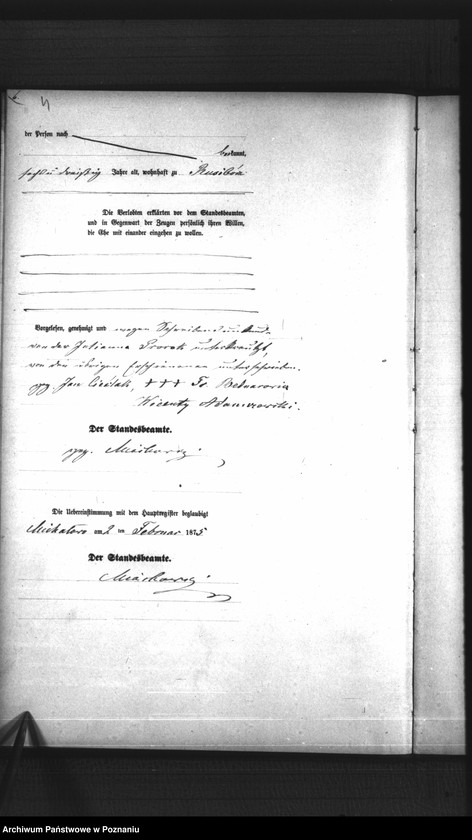 4
der Person nach
bekannt,
sechs und dreißig Jahre alt, wohnhaft zu Rusibórz
Die Verlobten erklärten vor dem Standesbeamten,
und in Gegenwart der Zeugen persönlich ihren Willen,
die Ehe mit einander eingehen zu wollen.
Vorgelesen, genehmigt und wegen Schreibensunkunde
von der Julianna unterkreuzt,
von den übrigen Erschienenen unterschrieben.
gez. Jan +++ Fr. Bednarowicz
Wicenty Adamczewski.
Der Standesbeamte.
gez.
Die Uebereinstimmung mit dem Hauptregister beglaubigt
am 2 ten Februar 1875
Der Standesbeamte.
Archiwum Państwowe w Poznaniu